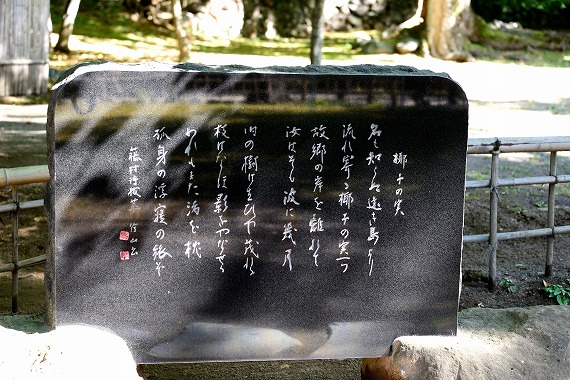 椰子の実
名も知らぬ遠き島より
流れ寄る椰子の実一つ
故郷の岸を離れて
汝はそも波に幾月
旧の樹は生ひや茂れる
枝はなほ影をやなせる
われもまた渚を枕
孤身の浮寝の旅ぞ
藤村